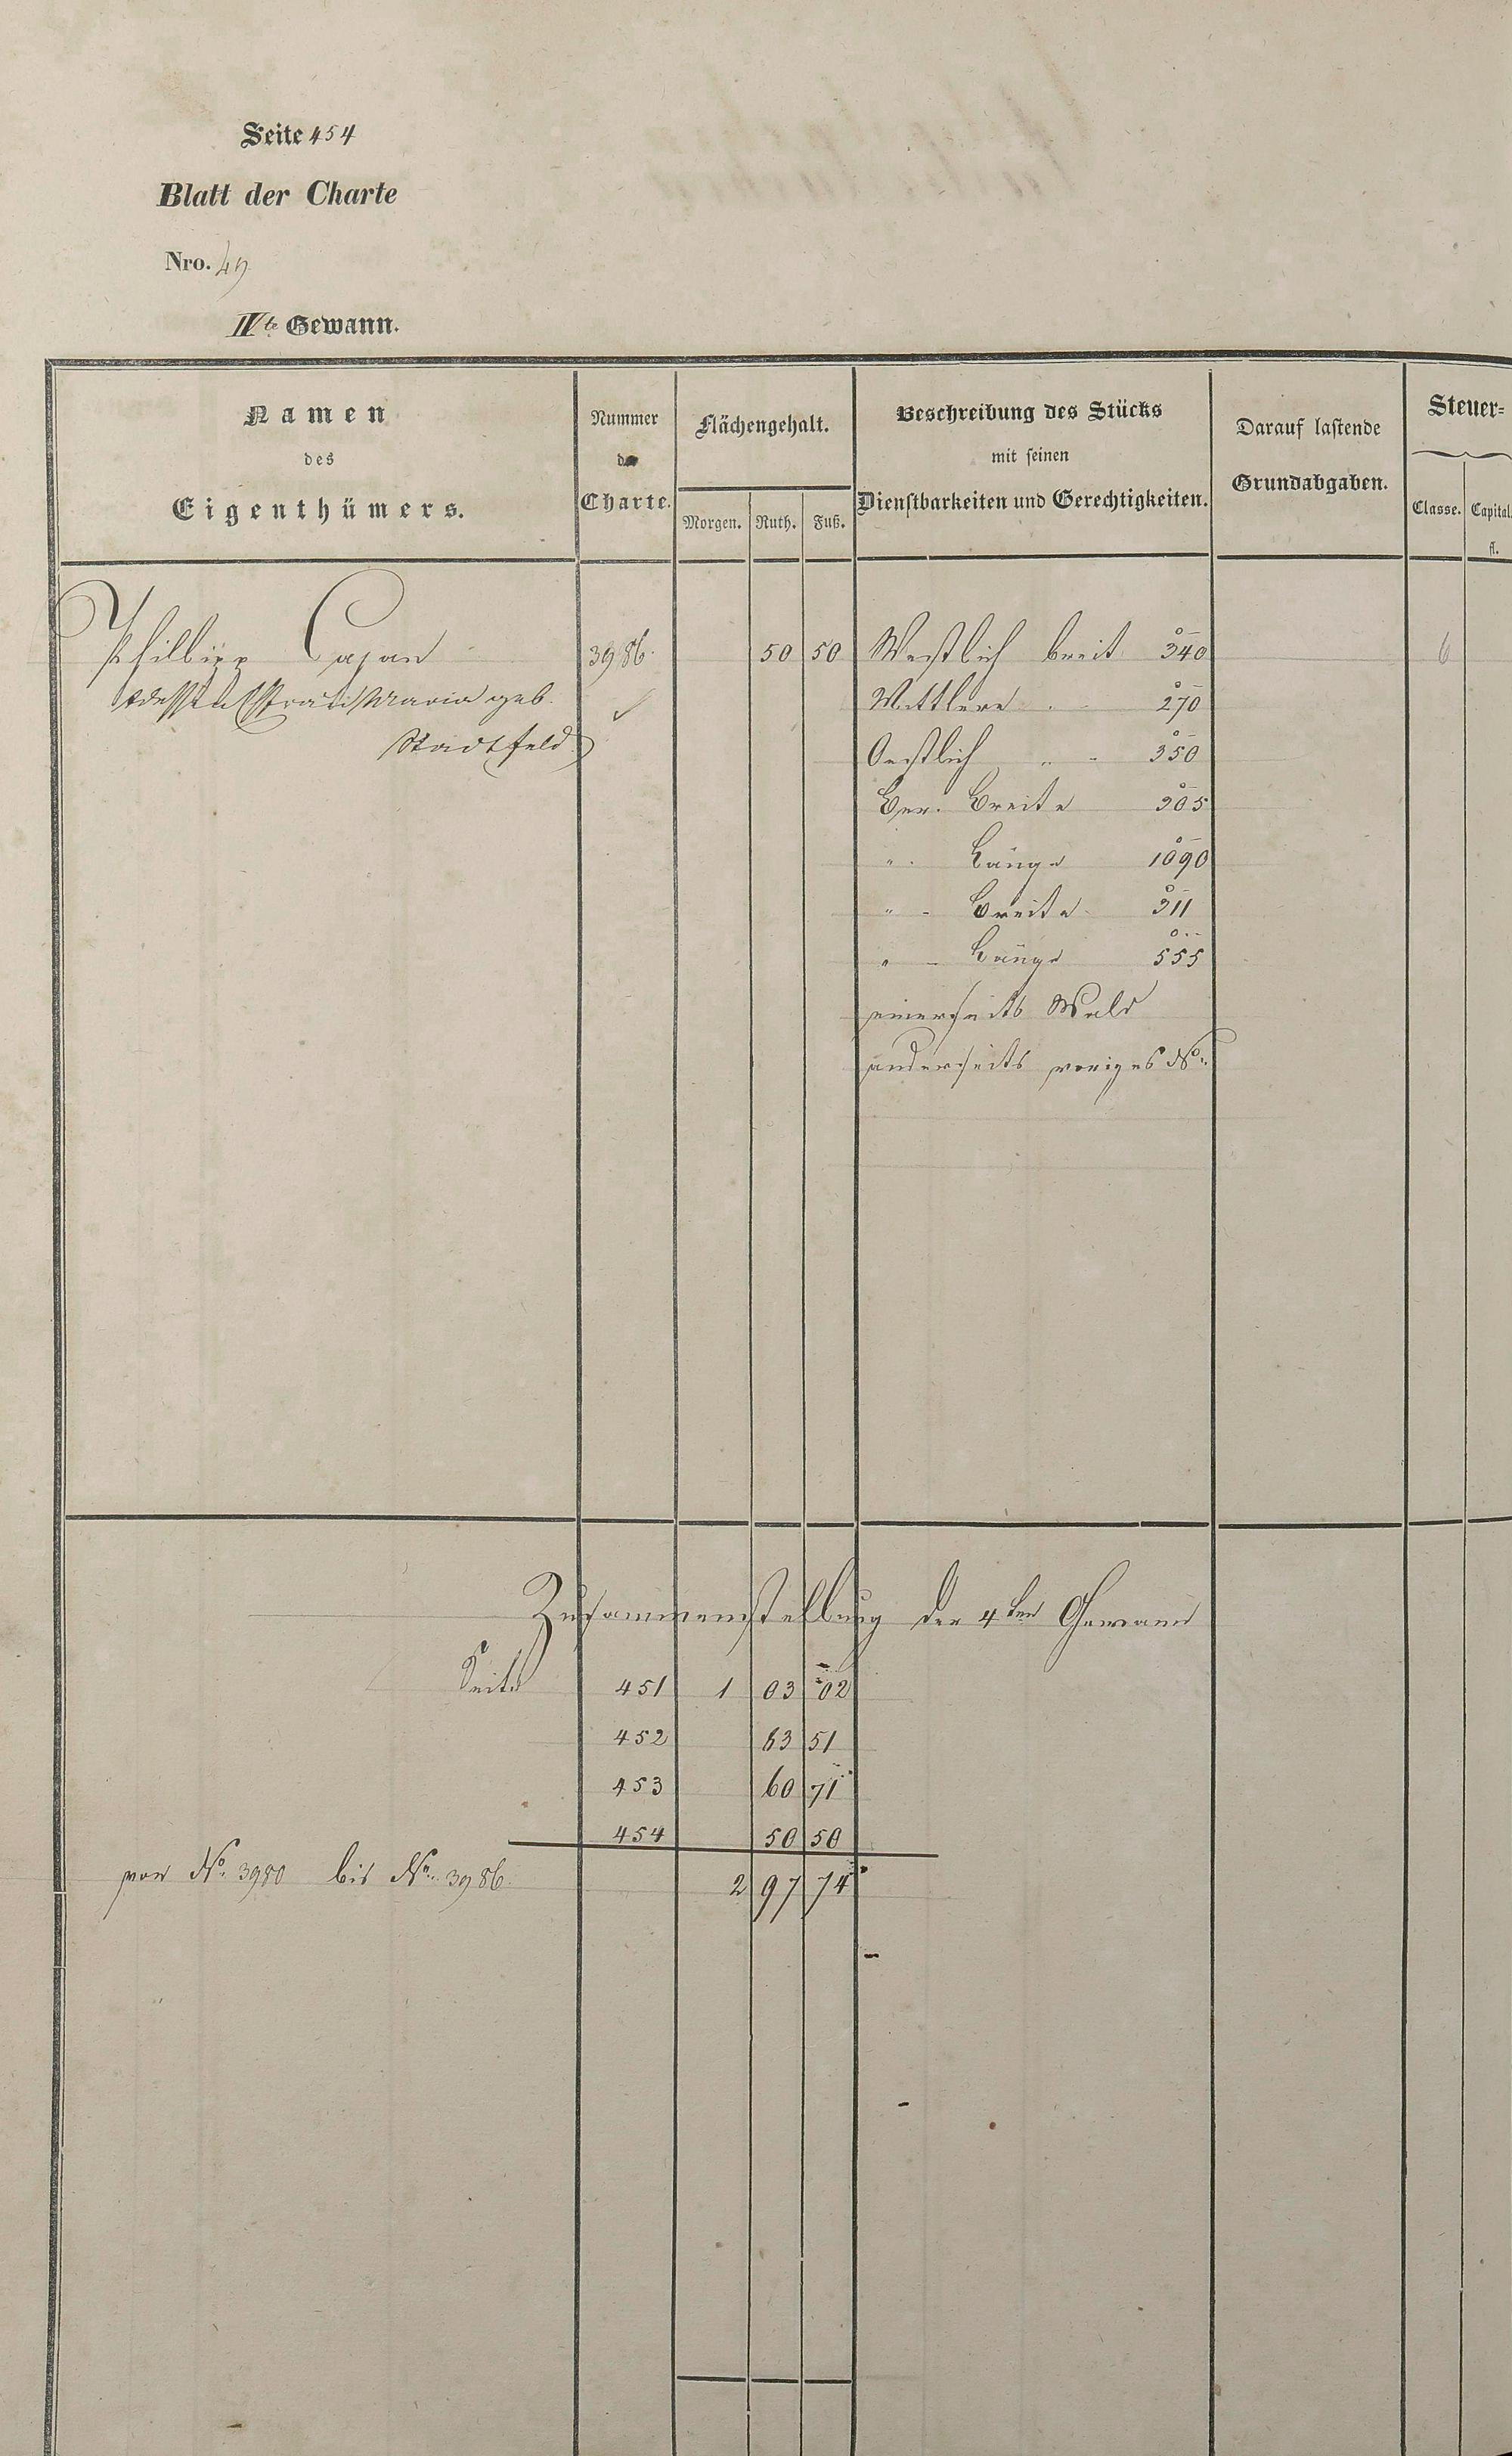 Seite 454
Blatt der Charte
Nro. 49
IVte Gewann.
Namen
des
Eigenthümers.
Nummer
der
Charte.
Flächengehalt.
Morgen. Ruth. Fuß.
Beschreibung des Stücks
mit seinen
Dienstbarkeiten und Gerechtigkeiten.
Darauf lastende
Grundabgaben.
Steuer=
Classe. Capital.
fl.
Phillipp Cajan 3986. 50 50 Westlich breit 340 6
dessen Frau Maria geb. Mittlere " 270
Stadtfeld Oestlich " " 350
Ber. Breite 305
" Länge 1090
" Breite 311
" Länge 555
einerseits Wald
anderseits voriges No.
Zusammenstellung der 4ten Gewann
Seite 451 1 03 02
452 83 51
453 60 71
454 50 50
von No. 3980 bis No. 3986. 2 97 74